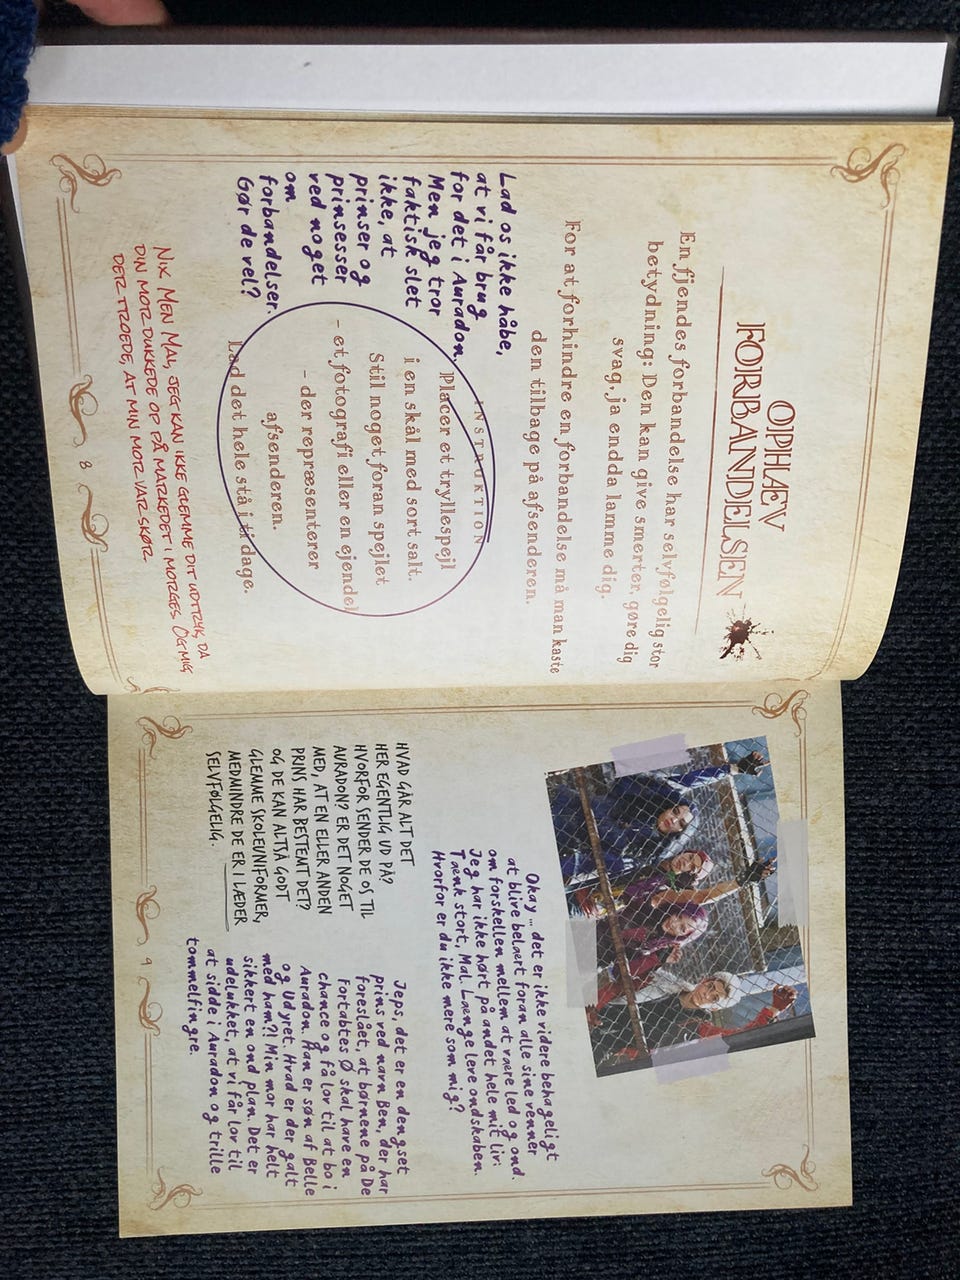 OPHÆV
FORBANDELSEN
En fjendes forbandelse har selvfølgelig stor
betydning: Den kan give smerter, gøre dig
svag, ja endda lamme dig.
For at forhindre en forbandelse må man kaste
den tilbage på afsenderen.
Lad os ikke håbe,
at vi får brug
for det i Auradon.
Men jeg tror
faktisk slet
ikke, at
prinser og
prinsesser
ved noget
om
forbandelser.
Gør de vel?
INSTRUKTION
Placer et tryllespejl
i en skål med sort salt.
Stil noget foran spejlet
- et fotografi eller en ejendel
- der repræsenterer
afsenderen.
Lad det hele stå i ti dage.
NIX. MEN MAL, JEG KAN IKKE GLEMME DIT UDTRYK, DA
DIN MOR DUKKEDE OP PÅ MARKEDET I MORGES. OG MIG
DER TROEDE, AT MIN MOR VAR SKØR.
8
Okay ... det er ikke videre behageligt
at blive belært foran alle sine venner
om forskellen mellem at være led og ond.
Jeg har ikke hørt på andet hele mit liv:
Tænk stort, Mal. Længe leve ondskaben.
Hvorfor er du ikke mere som mig?
HVAD GÅR ALT DET
HER EGENTLIG UD PÅ?
HVORFOR SENDER DE OS TIL
AURADON? ER DET NOGET
MED, AT EN ELLER ANDEN
PRINS HAR BESTEMT DET?
OG DE KAN ALTSÅ GODT
GLEMME SKOLEUNIFORMER,
MEDMINDRE DE ER I LÆDER
SELVFØLGELIG.
Jeps, det er en dengset
prins ved navn Ben, der har
foreslået, at børnene på De
Fortabtes Ø skal have en
chance og få lov til at bo i
Auradon. Han er søn af Belle
og Udyret. Hvad er der galt
med ham?! Min mor har helt
sikkert en ond plan. Det er
udelukket, at vi får lov til
at sidde i Auradon og trille
tommelfingre.
9